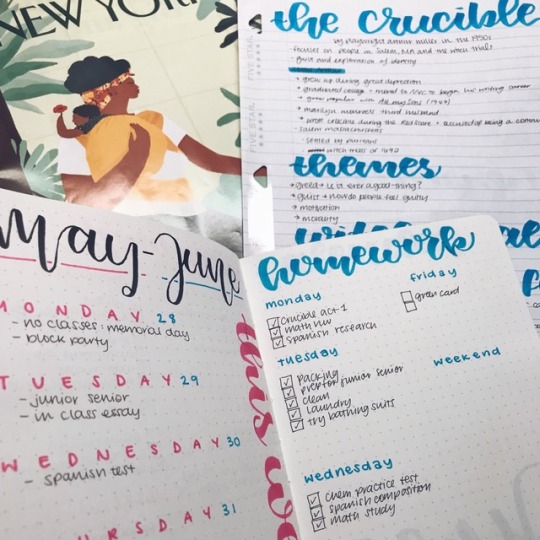 NEW YORK
the crucible
by playwright arthur miller in the 1950s
focuses on people in Salem, MA and the witch trials
guilt and exploration of identity
grew up during great depression
graduated college + moved to NYC to begin his writing career
grew popular with all my sons (1947)
marilyn monroe's third husband
wrote crucible during the red scare + accused of being a commu
salem massachusetts
settled by puritans
witch trials of 1692
FIVE STAR
FIVE STAR
themes
→ greed → is it ever a good thing?
→ guilt → how do people feel guilty
→ motivation
→ morality
May-June
MONDAY 28
- no classes: memorial day
- block party
TUESDAY 29
- junior senior
- in class essay
WEDNESDAY 30
- spanish test
31
this we
homework
monday
crucible act 1
math hw
spanish research
tuesday
packing
prep for junior senior
clean
laundry
try bathing suits
wednesday
chem practice test
spanish composition
math study
friday
green card
weekend